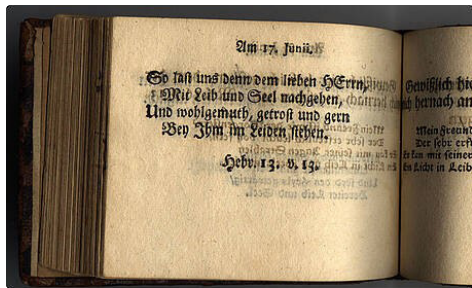 Am 17. Junii.
So last uns denn dem lieben HErrn,
Mit Leib und Seel nachgehen,
Und wohlgemuth, getrost und gern
Bey Jhm im Leiden stehen.
Hebr. 13. v. 13.
Gewißlich hie
hernach an
Mein Freund
Der sehr erst
kan mit seiner
Licht in Leid